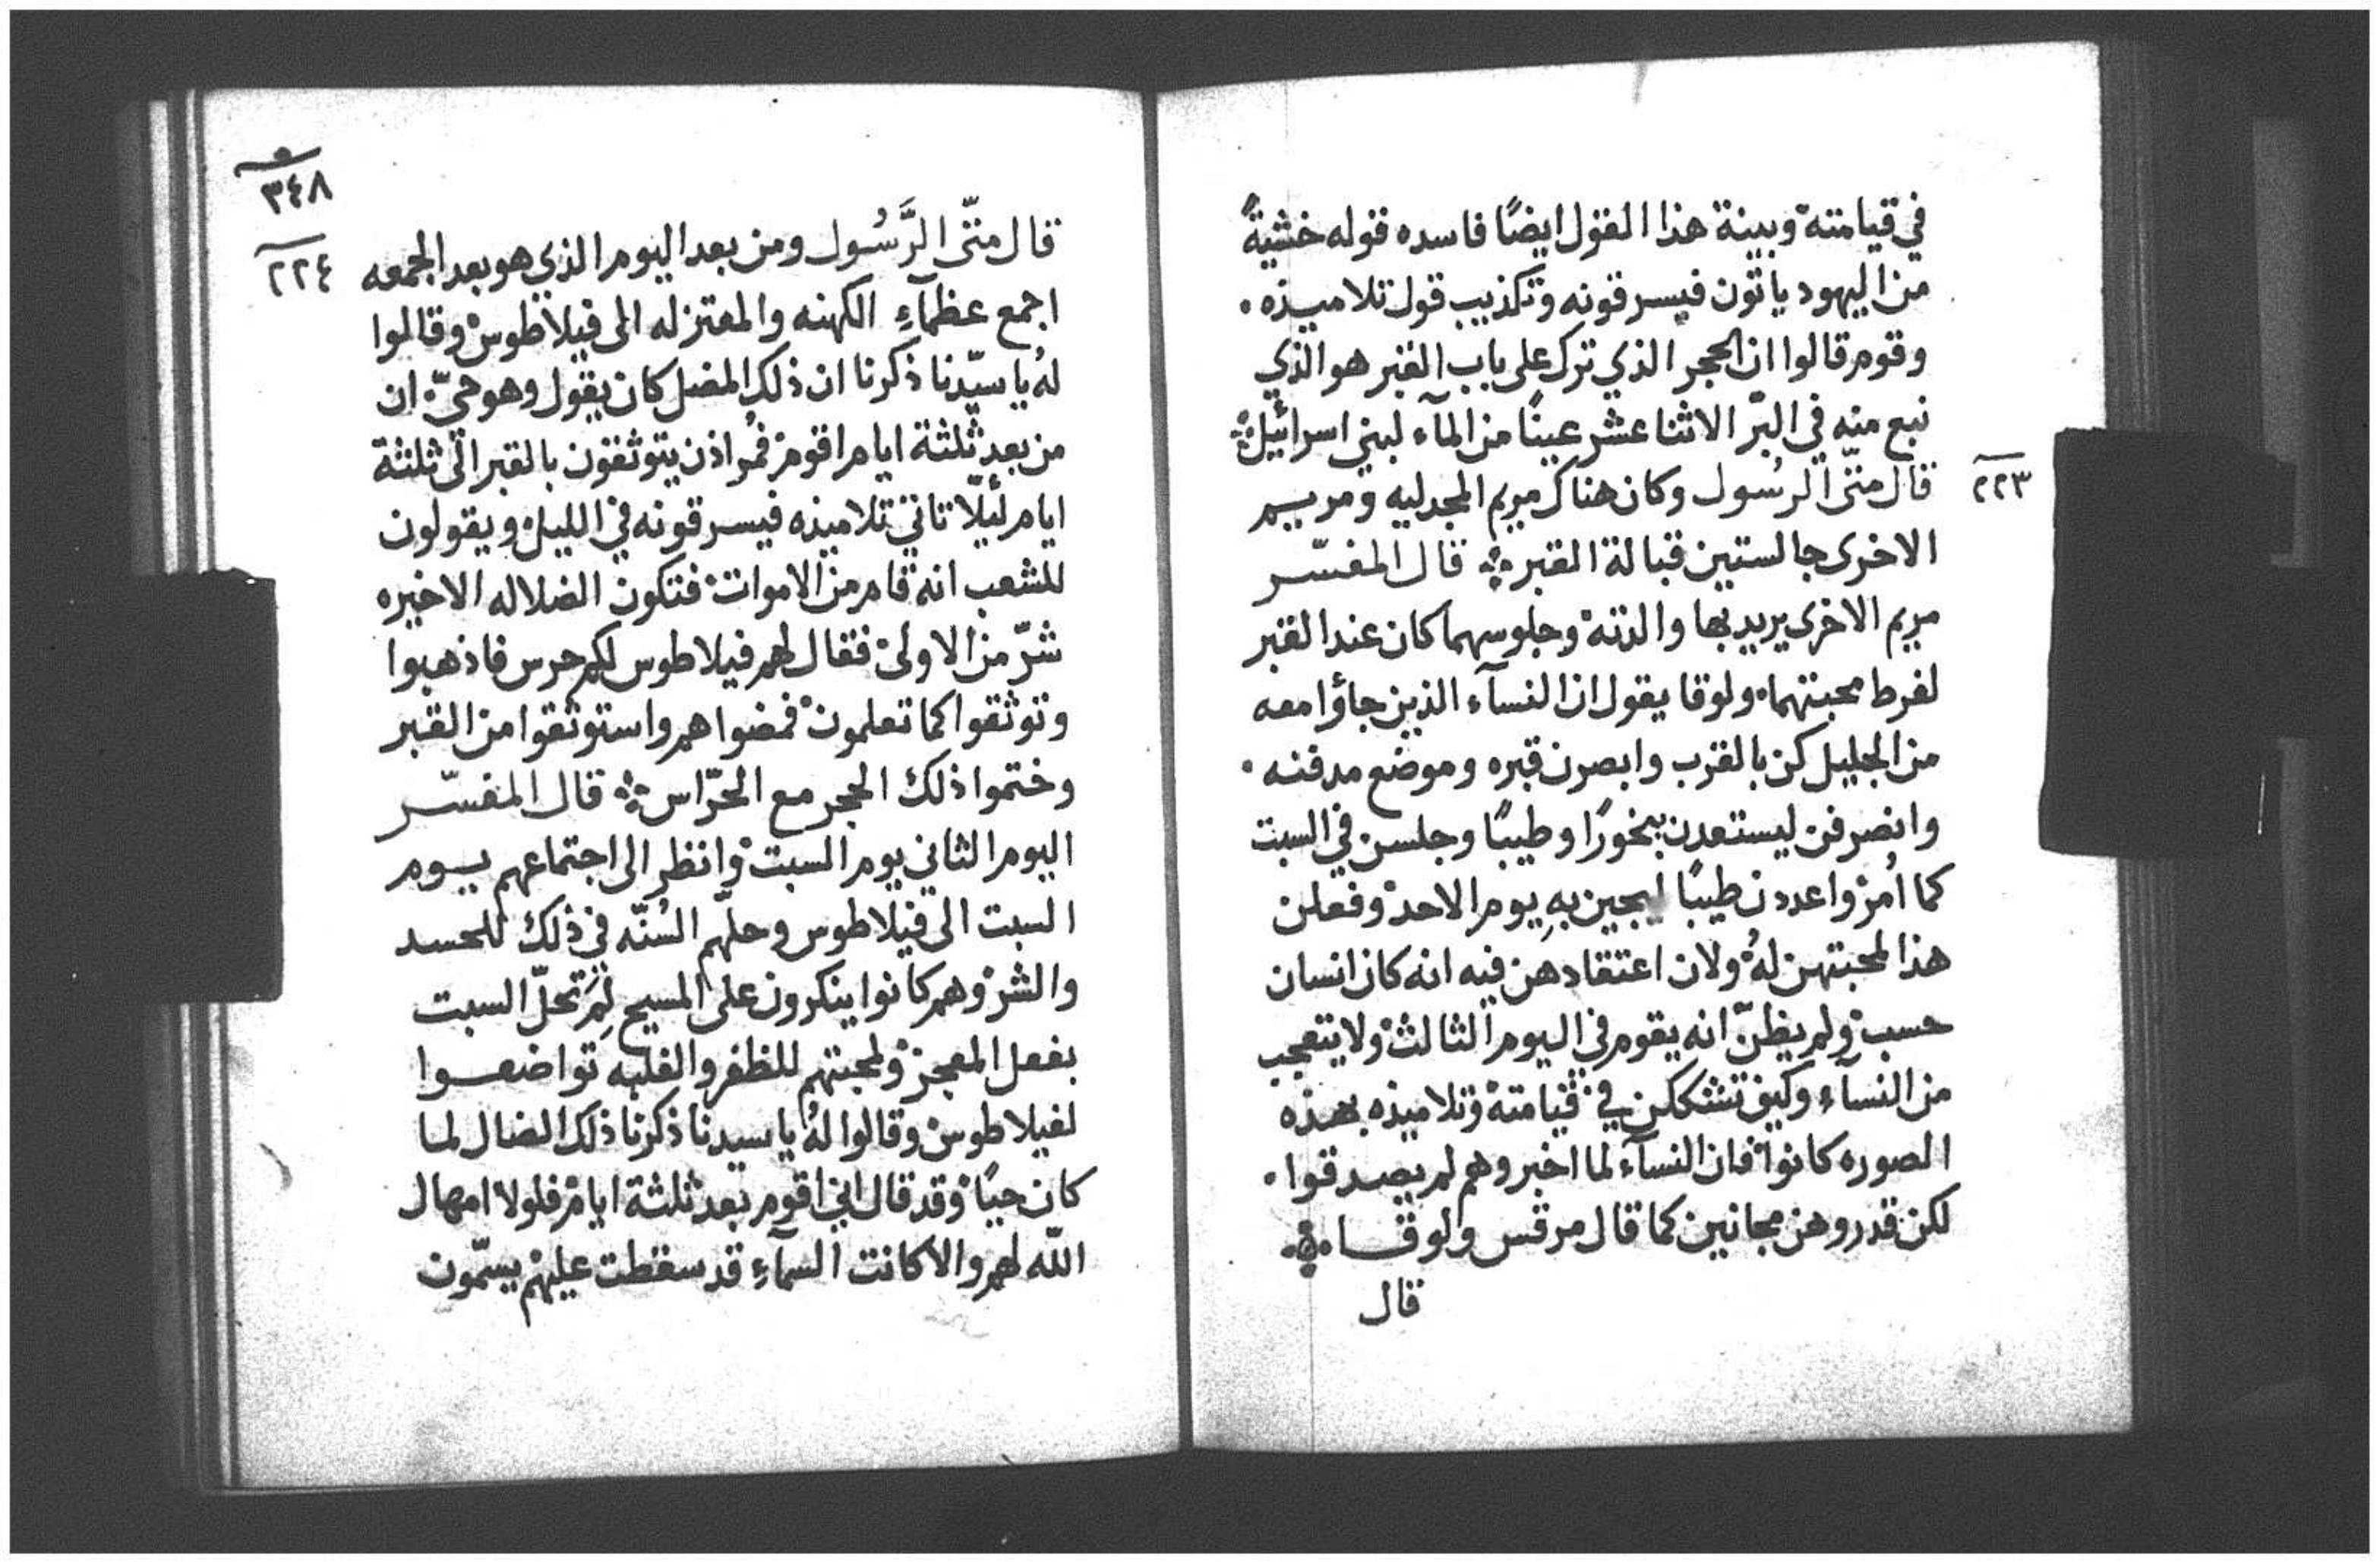 في قيامته وبينة هذا القول ايضًا فاسده قوله خشيةً
من اليهود ياتون فيسرقونه وتكذيب قول تلاميذه٠
وقوم قالوا ان الحجر الذي ترك على باب القبر هو الذي
نبع منه في البّر الاثنا عشر عينًا من المآء لبني اسرائيل
٢٢٣
قال متّى الرسُول وكان هناك مريم المجدليه ومريم
الاخرى جالستين قبالة القبر ܀ قال المفسّر
مريم الاخرى يريد بها والدته وجلوسهما كان عند القبر
لفرط محبتهما ولوقا يقول ان النسآء الذين جاؤا معه
من الجليل كن بالقرب وابصرن قبره وموضع مدفنه٠
وانصرفن ليستعدن بخورًا وطيبًا وجلسن في السبت
كما اُمر واعددن طيبًا ليجين بهِ يوم الاحد وفعلن
هذا لمحبتهن لهُ ولان اعتقادهن فيه انه كان انسان
حسب ولم يظنّ انه يقوم في اليوم الثالث ولا يتعجب
من النسآء وكيف تشككن في قيامته وتلاميذه بهذه
الصوره كانوا فان النسآء لما اخبروهم لم يصدقوا٠
لكن قدروهن مجانين كما قال مرقس ولوقا ܀
قال
٣٤٨
٢٢٤
قال متّى الرَّسُول ومن بعد اليوم الذي هو بعد الجمعه
اجمع عظمآءِ الكهنه والمعتزله الى فيلاطوس وقالوا
لهُ يا سيّدنا ذكرنا ان ذلك المضل كان يقول وهو حيّ ان
من بعد ثلثة ايام اقوم فمُر اذن يتوثقون بالقبر الى ثلثة
ايام لئلّا تاتي تلاميذه فيسرقونه في الليل ويقولون
للشعب انه قام من الاموات فتكون الضلاله الاخيره
شرّ من الاولى فقال لهم فيلاطوس لكم حرس فاذهبوا
وتوثقوا كما تعلمون فمضوا هم واستوثقوا من القبر
وختموا ذلك الحجر مع الحرّاس ܀ قال المفسّر
اليوم الثاني يوم السبت وانظر الى اجتماعهم يوم
السبت الى فيلاطوس وحلّهم السُنّه في ذلك للحسد
والشر وهم كانوا ينكرون على المسيح لِمَ تحلّ السبت
بفعل المعجز ولمحبتهم للظفر والغلبه تواضعوا
لفيلاطوس وقالوا لهُ يا سيدنا ذكرنا ذلك الضال لما
كان حيًا وقد قال اني اقوم بعد ثلثة ايام فلولا امهال
اللّه لهم والا كانت السمآءِ قد سقطت عليهم يسمّون